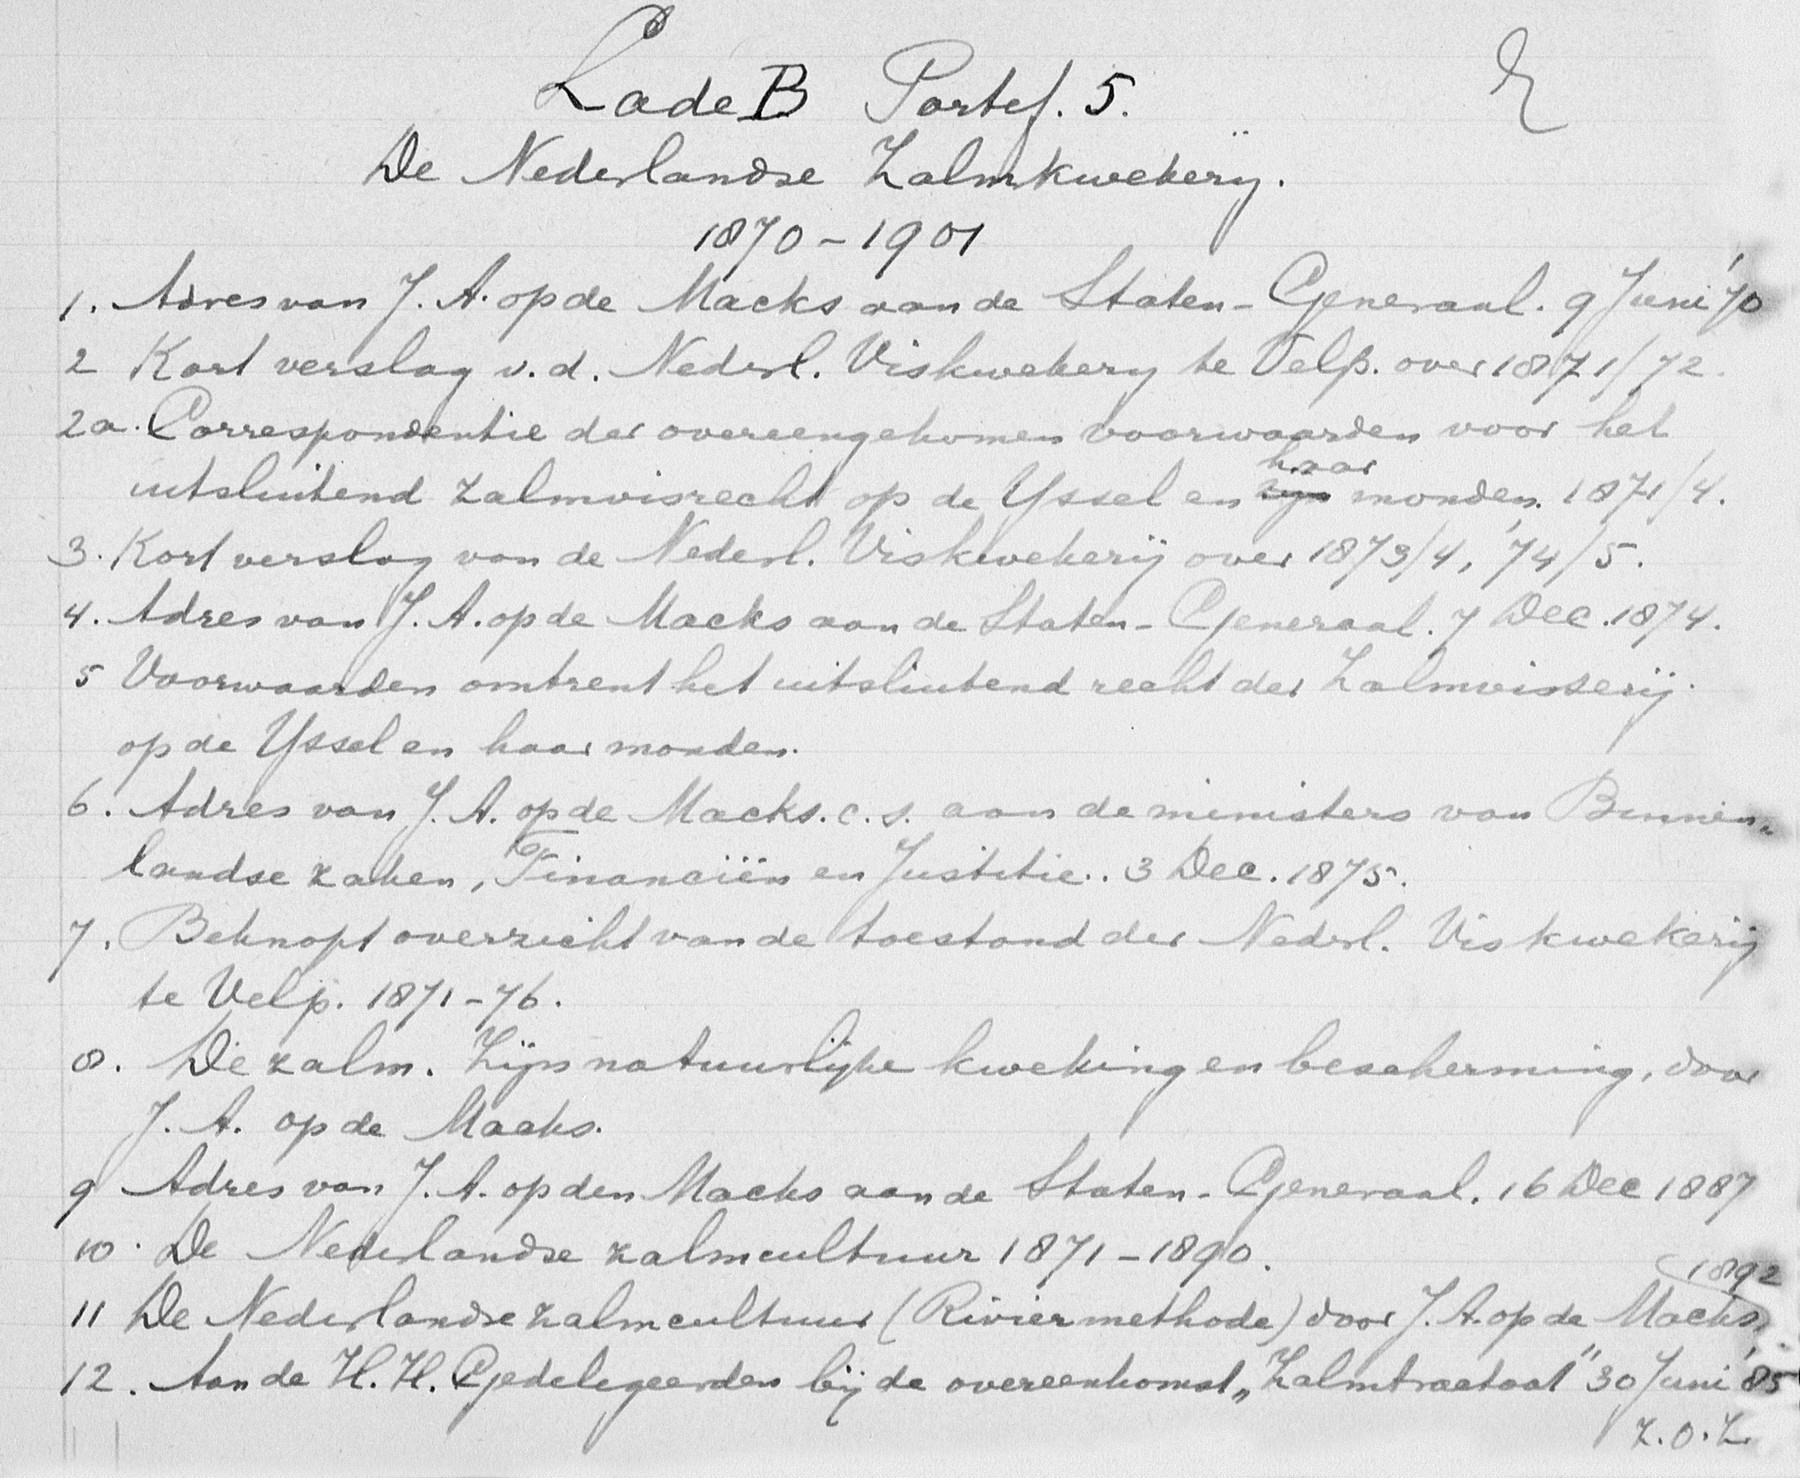 Lade B Portef. 5.
De Nederlandse Zalmkwekerÿ.
1870 – 1901
1. Adres van J. A. op de Macks aan de Staten-Generaal. 9 Juni '70
2 Kort verslag v. d. Nederl. Viskwekery te Velp. over 1871/72.
2a. Correspondentie der overeengekomen voorwaarden voor het
haar
uitsluitend zalmvisrecht op de Yssel en zijn monden. 1871/4.
3. Kort verslag van de Nederl. Viskwekerij over 1873/4, '74/5.
4. Adres van J. A. op de Macks aan de Staten-Generaal. 7 Dec. 1874.
5 Voorwaarden omtrent het uitsluitend recht der Zalmvisserij
op de Yssel en haar monden.
6. Adres van J. A. op de Macks. c. s. aan de ministers van Binnen-
landse zaken, Financiën en Justitie. 3 Dec. 1875.
7. Beknopt overzicht van de toestand der Nederl. Viskwekerij
te Velp. 1871-76.
8. De zalm. Zijn natuurlijke kweking en bescherming, door
J. A. op de Macks.
9 Adres van J. A. op den Macks aan de Staten-Generaal. 16 Dec 1887
10. De Nederlandse zalmcultuur 1871-1890.
1892
11 De Nederlandse zalmcultuur (Riviermethode) door J. A. op de Macks,
12. Aan de H. H. Gedelegeerden bij de overeenkomst „Zalmtractaat" 30 Juni '85
Z.O.Z.